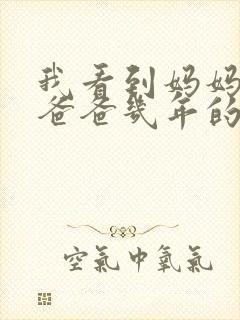 我看到妈妈
爸爸几年的
空氣中氧氣